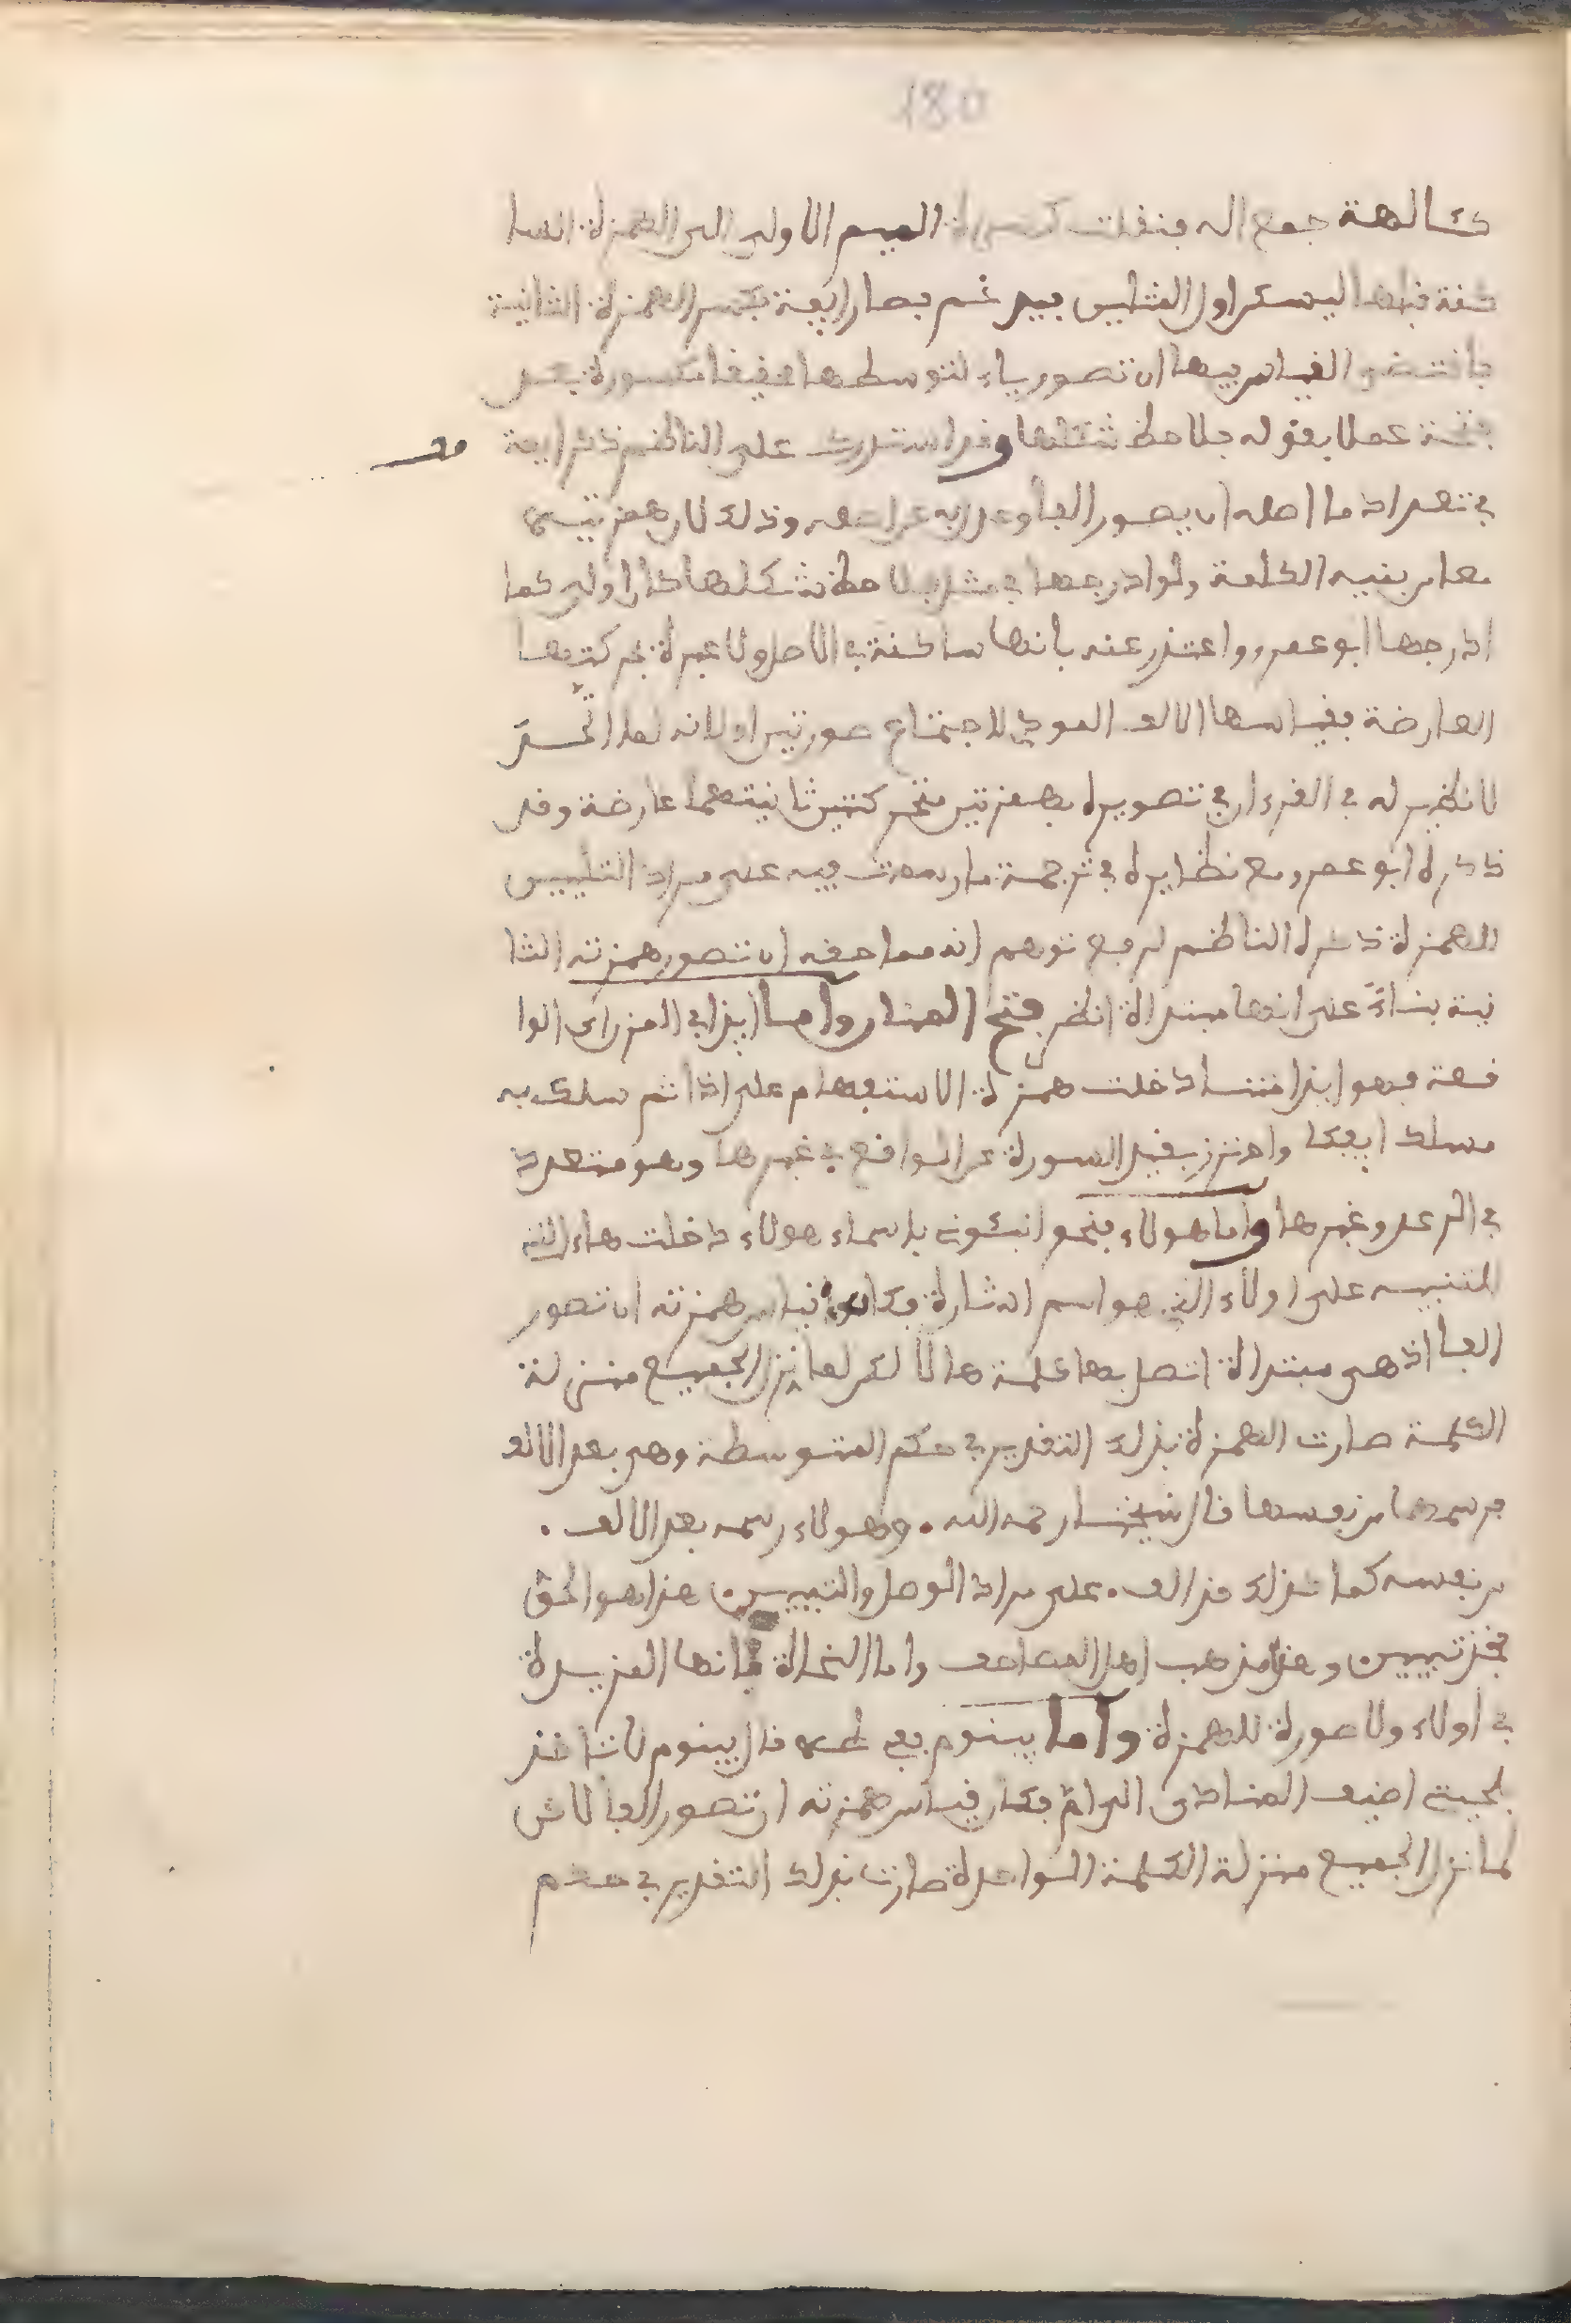 180
كئالهة جمع اله فنقلت كسرة الميم الاولى الى الهمزة السا
كنة قبلها ليسكن اول المثلين فيدغم فصار ايمة بكسر الهمزة الثانية
فاقتضى القياس فيها ان تصور ياء لتوسطها حقيقا مكسورة بعد
فتحة عملا بقوله فلاحظ شكلها وقد استدرك على الناظم ذكر ايمة
في تعداد ما اصله ان يصور الفا وعد به عن اصله وذلك لان همزتيها
معا من بنية الكلمة ولو ادرجها في مثل بلاحظ شكلها كان اولى كما
ادرجها ابو عمرو واعتذر عنه بانها ساكنة في الاصل ولا عبرة بحركتها
العارضة فقياسها الالف المودي لاجتماع صورتين او لانه لما
لا نظير له في القرءان في تصويره بهمزتين متحركتين ثانيتهما عارضة وقد
ذكره ابو عمرو مع نظايره في ترجمة ما رسمت فيه على مراد التليين
للهمزة ذكره الناظم لرفع توهم انه مما حقه ان تصور همزته الثا
نية بناءً على انها مبتدأة انظر فتح المنان واما ايذا في المزن اي الوا
قعة فهو ايذا متنا دخلت همزة الاستفهام على اذا ثم سلك به
مسلك ايفكا واحترز بقيد السورة عن الواقع في غيرها وهو متعدد
في الرعد وغيرها واما هولاء فنحو انبئوني باسماء هولاء دخلت هاء التنـ
للتنبيه على اولاء الذي هو اسم اشارة فكان قياس همزته ان تصور
الفا اذ هي مبتدأة اتصل بها كلمة ها لا لكن لما نزل الجميع منزلة
الكلمة صارت الهمزة بذلك التقدير في حكم المتوسطة وهي بعد الالف
فرسمها من نفسها قال شيخنا رحمه الله . وهولاء رسمه بعد الالف .
من نفسه كما كذلك قد الف . على مراد الوصل والتليين هذا هو الحق
فخذ تبيين وهذا مذهب اهل المصاحف واما النحاة فانها المزيدة
في اولاء ولا صورة للهمزة واما يبنوم ففي طه قال يبنوم لا تاخذ
بلحيتي اضيف المنادى الى امّ فكان قياس همزته ان تصور الفا لاكن
لما نزل الجميع منزلة الكلمة الواحدة صارت بذلك التقدير في حكم